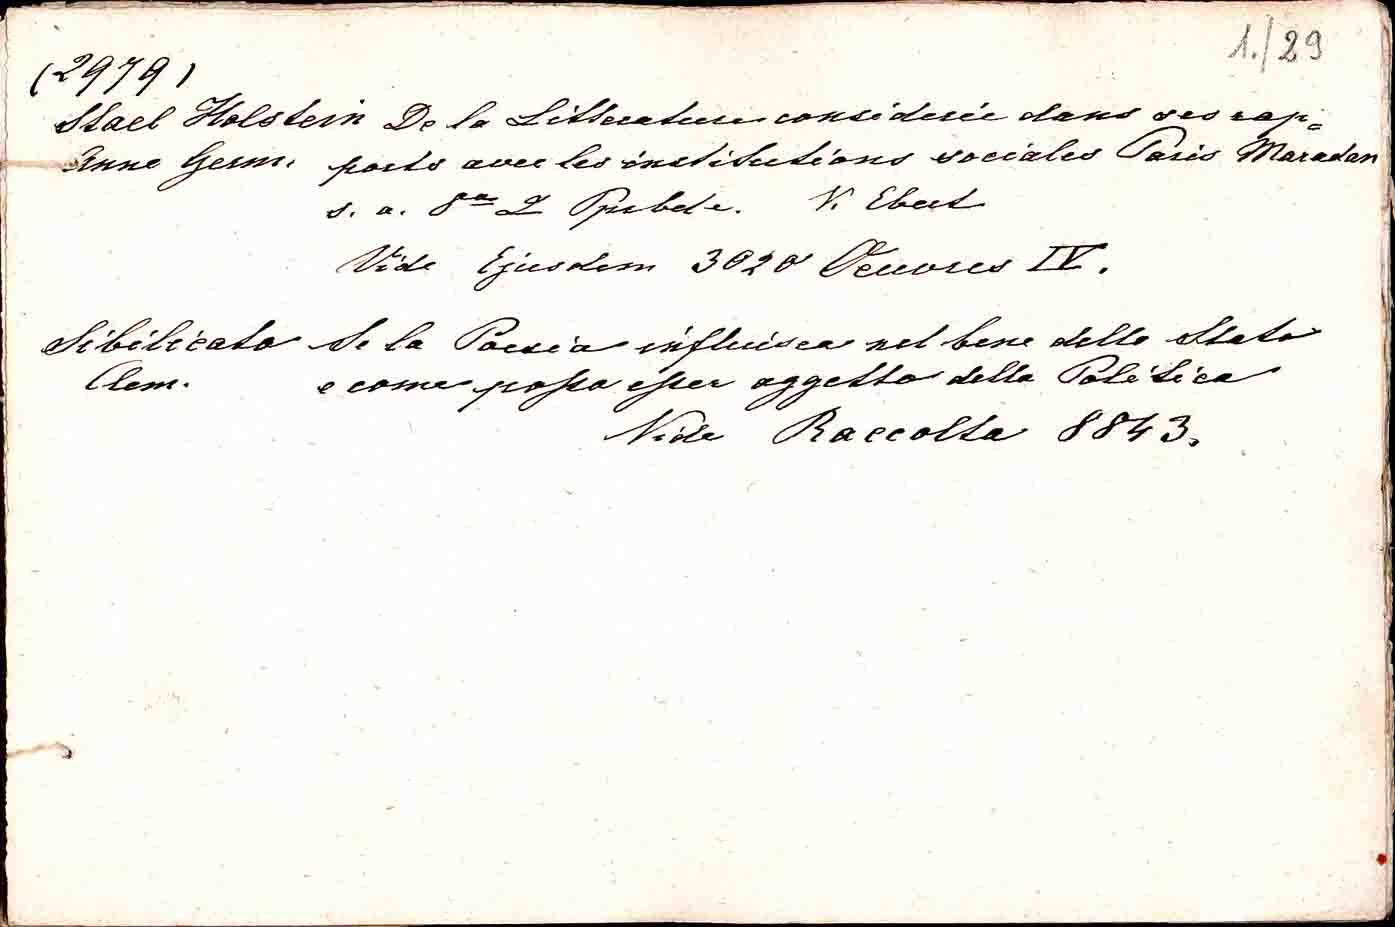 1./29
(2979)
Stael Holstein De la Litterature considerée dans ses rap=
Anne Germ. ports avec les institutions sociales Paris Maradan
s. a. 8º 2 V. Ebert
Vide Ejusdem 3020 Oeuvres IV.
Sibilicato Se la Poesia influisca nel bene dello Stato
Clem. e come possa esser oggetto della Politica
Vide Raccolta 8843.